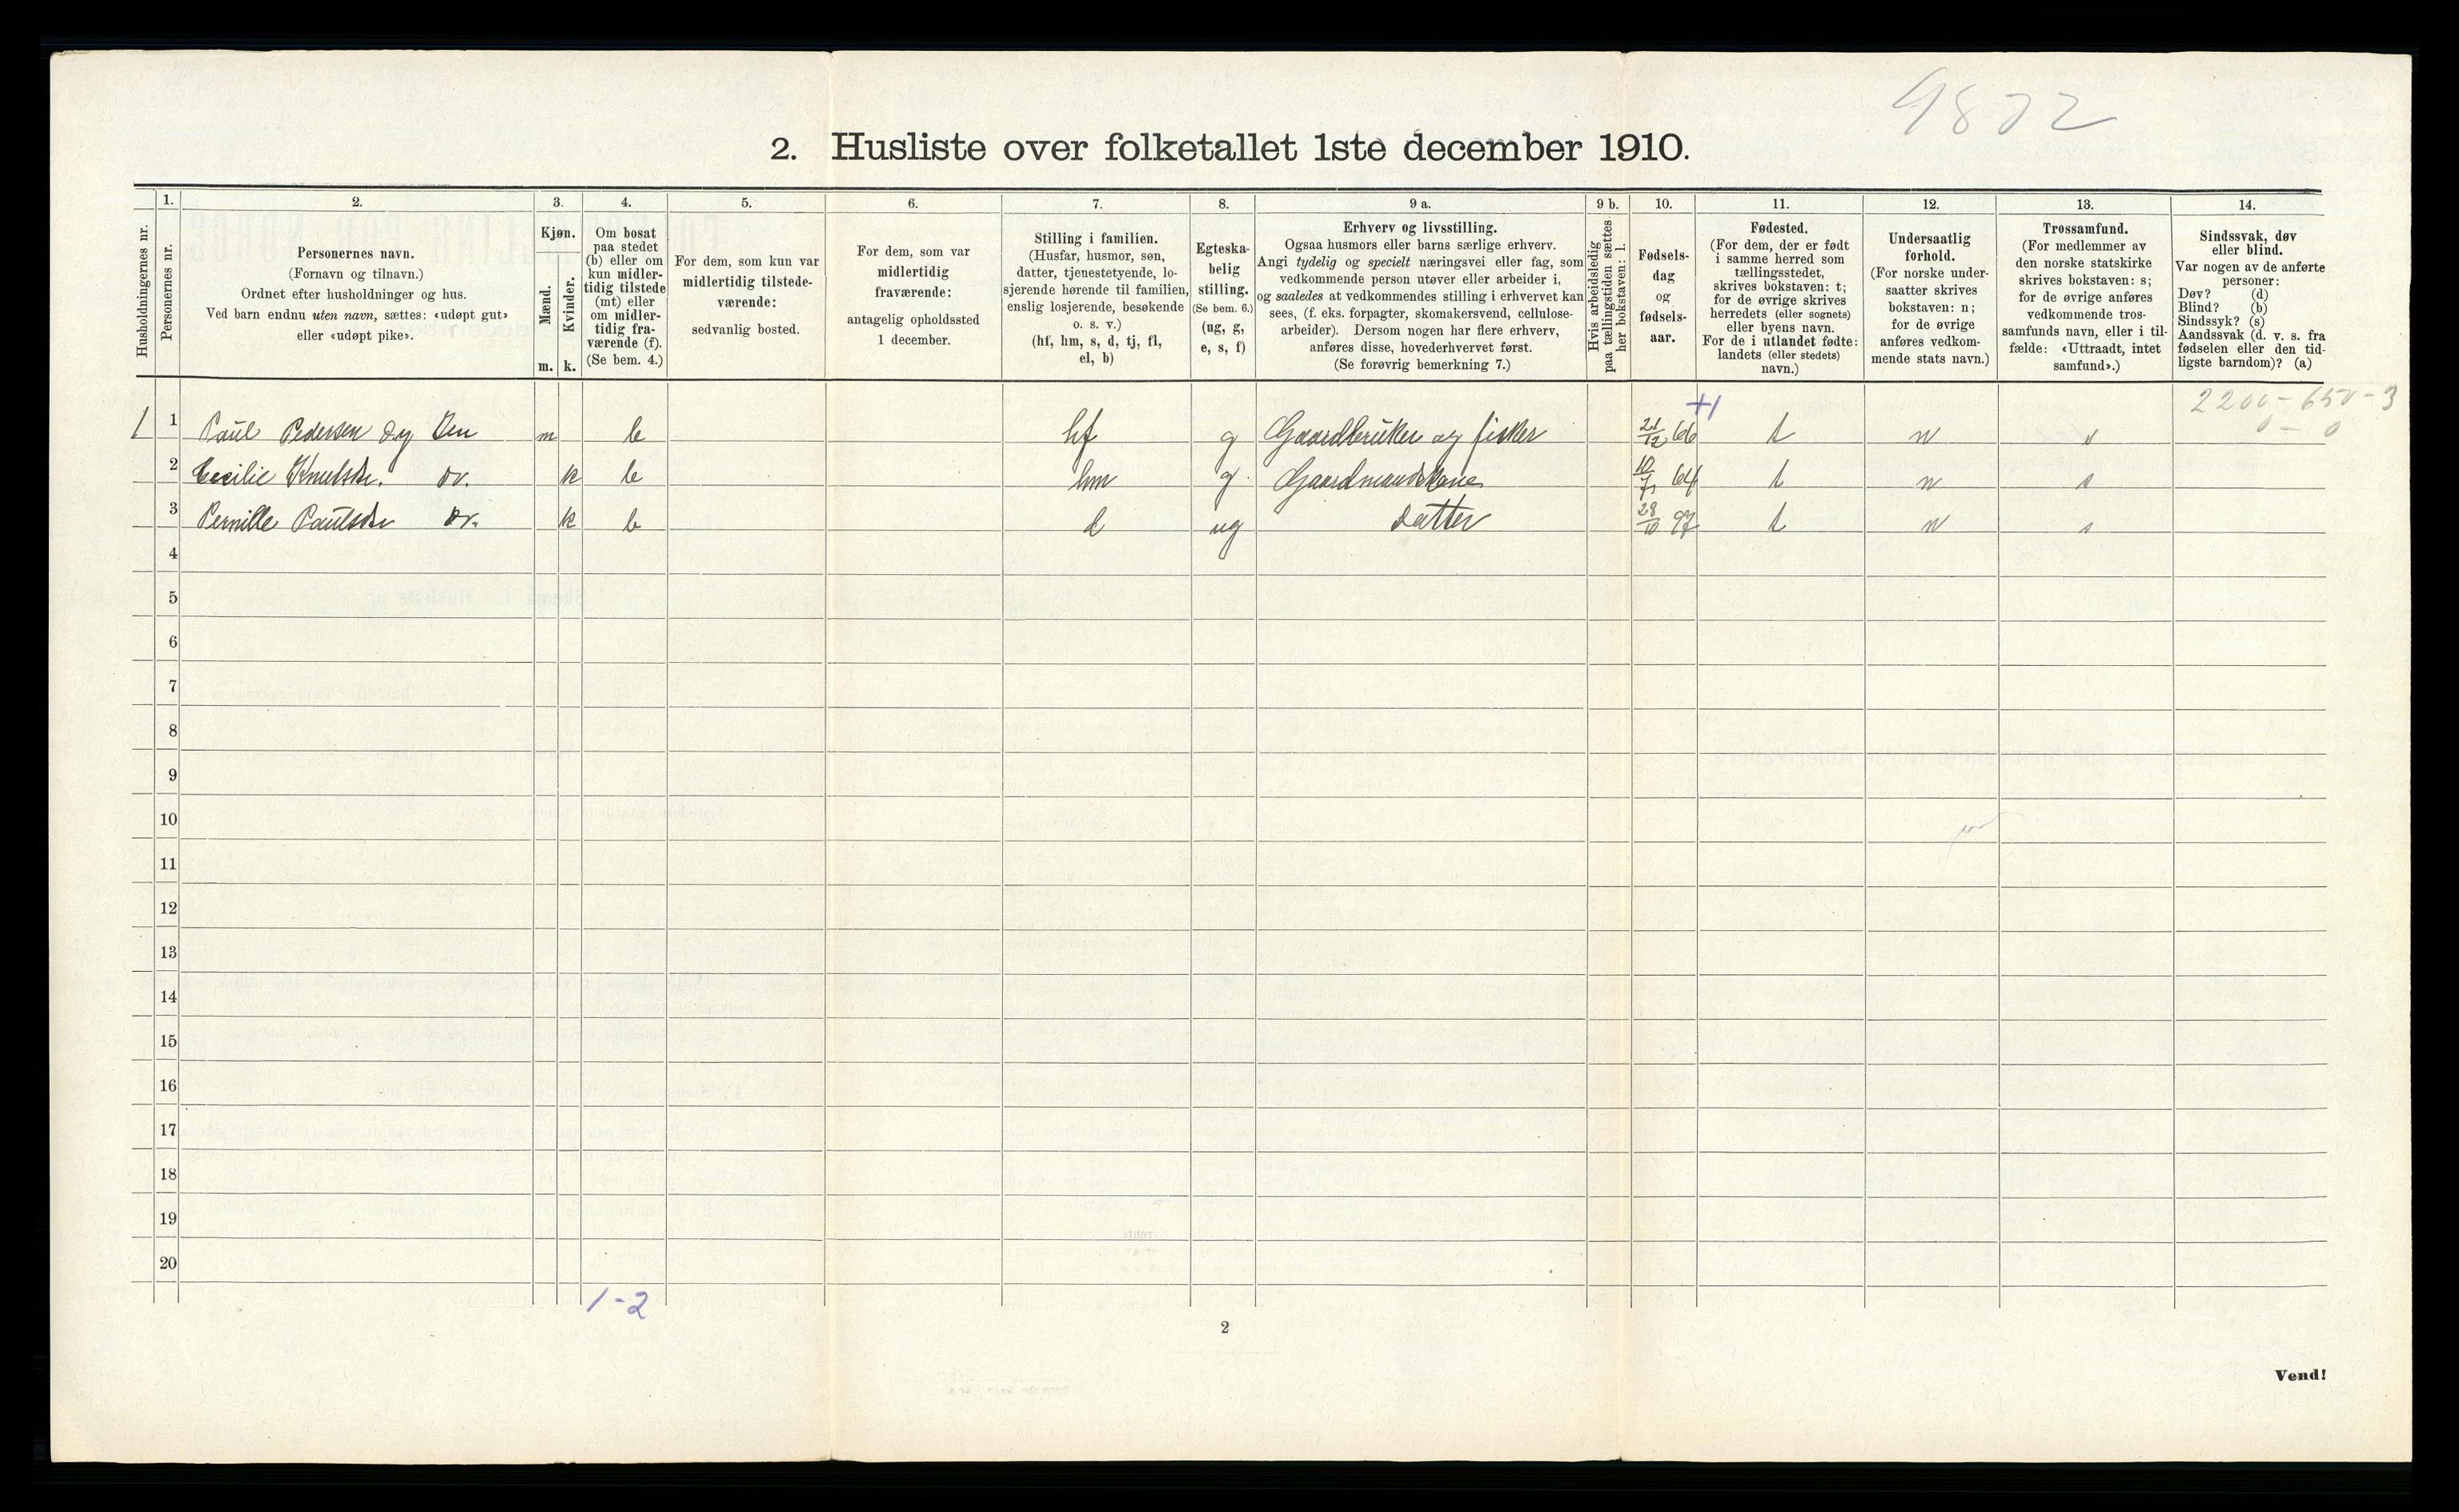 9872
2. Husliste over folketallet 1ste december 1910.
Husholdningernes nr.
1.
Personernes nr.
2.
Personernes navn.
(Fornavn og tilnavn.)
Ordnet efter husholdninger og hus.
Ved barn endnu uten navn, sættes: «udøpt gut»
eller «udøpt pike».
3.
Kjøn.
Mænd.
Kvinder.
m. k.
4.
Om bosat
paa stedet
(b) eller om
kun midler-
tidig tilstede
(mt) eller
om midler-
tidig fra-
værende (f).
(Se bem. 4.)
5.
For dem, som kun var
midlertidig tilstede-
værende:
sedvanlig bosted.
6.
For dem, som var
midlertidig
fraværende:
antagelig opholdssted
1 december.
7.
Stilling i familien.
(Husfar, husmor, søn,
datter, tjenestetyende, lo-
sjerende hørende til familien,
enslig losjerende, besøkende
o. s. v.)
(hf, hm, s, d, tj, fl,
el, b)
8.
Egteska-
belig
stilling.
(Se bem. 6.)
(ug, g,
e, s, f)
9 a.
Erhverv og livsstilling.
Ogsaa husmors eller barns særlige erhverv.
Angi tydelig og specielt næringsvei eller fag, som
vedkommende person utøver eller arbeider i,
og saaledes at vedkommendes stilling i erhvervet kan
sees, (f. eks. forpagter, skomakersvend, cellulose-
arbeider). Dersom nogen har flere erhverv,
anføres disse, hovederhvervet først.
(Se forøvrig bemerkning 7.)
9 b.
Hvis arbeidsledig
paa tællingstiden sættes
her bokstaven: l.
10.
Fødsels-
dag
og
fødsels-
aar.
11.
Fødested.
(For dem, der er født
i samme herred som
tællingsstedet,
skrives bokstaven: t;
for de øvrige skrives
herredets (eller sognets)
eller byens navn.
For de i utlandet fødte:
landets (eller stedets)
navn.)
12.
Undersaatlig
forhold.
(For norske under-
saatter skrives
bokstaven: n;
for de øvrige
anføres vedkom-
mende stats navn.)
13.
Trossamfund.
(For medlemmer av
den norske statskirke
skrives bokstaven: s;
for de øvrige anføres
vedkommende tros-
samfunds navn, eller i til-
fælde: «Uttraadt, intet
samfund».)
14.
Sindssvak, døv
eller blind.
Var nogen av de anførte
personer:
Døv? (d)
Blind? (b)
Sindssyk? (s)
Aandssvak (d. v. s. fra
fødselen eller den tid-
ligste barndom)? (a)
2200-650-3
0-0
+1
1 1 Paul Pedersen m b hf g Gaardbruker og fisker 21/12 66 t n s
2 Cecilie Knutsdtr. Do. k b hm g Gaardmandskone 10/7 64 t n s
3 Pernille Paulsdtr Do. k b d ug datter 28/10 97 t n s
4
5
6
7
8
9
10
11
12
13
14
15
16
17
18
19
20
1-2
2
Vend!